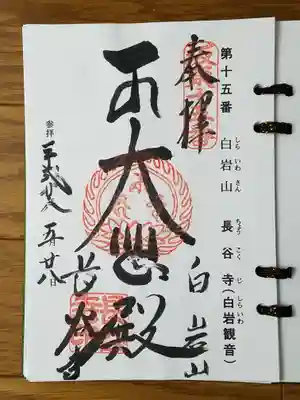 第十五番 白岩山 長谷寺(白岩観音)
しら いわ さん ちょう こく じ しら いわ
奉拝
白岩山
大悲殿
長谷寺
参拝